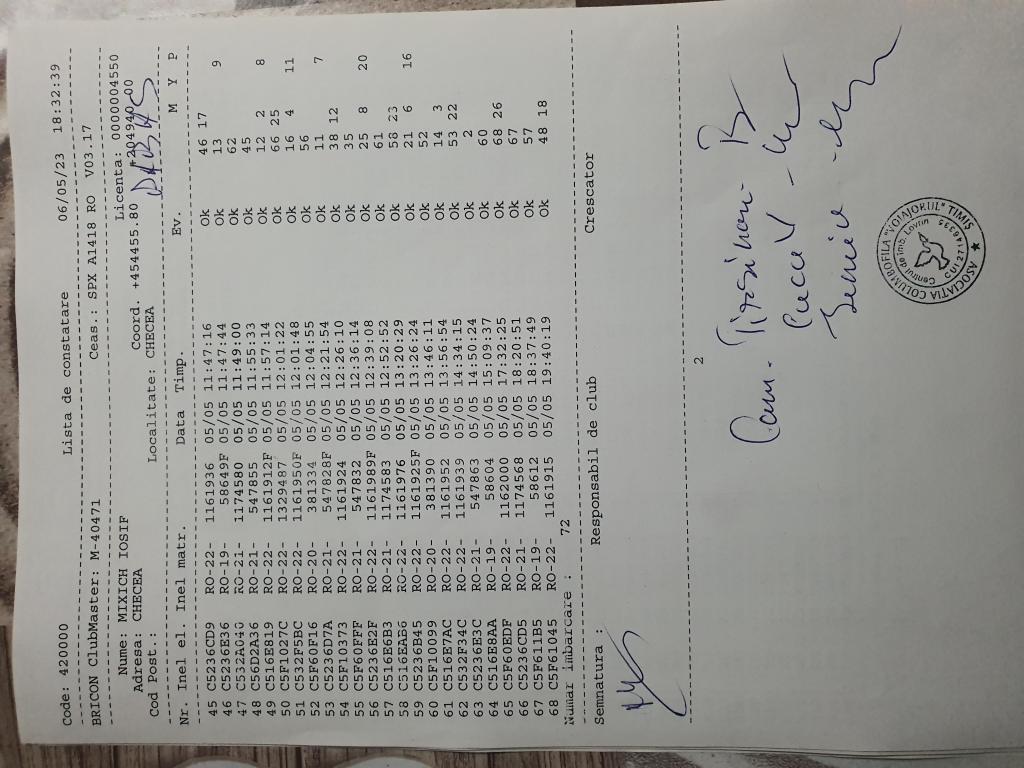 Code: 420000 Lista de constatare 06/05/23 18:32:39
BRICON ClubMaster: M-40471 Ceas.: SPX A1418 RO V03.17
Nume: MIXICH IOSIF Licenta: 0000004550
Adresa: CHECEA Coord. +454455.80 +204940.00
Cod Post.: Localitate: CHECEA
Nr. Inel el. Inel matr. Data Timp. Ev. M Y P
45 C5236CD9 RO-22- 1161936 05/05 11:47:16 Ok 46 17
46 C5236B36 RO-19- 58649F 05/05 11:47:44 Ok 13 9
47 C532A040 RO-21- 1174580 05/05 11:49:00 Ok 62
48 C56D2A36 RO-21- 547855 05/05 11:55:33 Ok 45
49 C516EB19 RO-22- 1161912F 05/05 11:57:14 Ok 12 2 8
50 C5F1027C RO-22- 1329487 05/05 12:01:22 Ok 66 25
51 C532F5BC RO-22- 1161950F 05/05 12:01:48 Ok 16 4 11
52 C5F60F16 RO-20- 381334 05/05 12:04:55 Ok 56
53 C5236D7A RO-21- 547828F 05/05 12:21:54 Ok 11 7
54 C5F10373 RO-22- 1161924 05/05 12:26:10 Ok 38 12
55 C5F60FFF RO-21- 547832 05/05 12:36:14 Ok 35
56 C5236E2F RO-22- 1161989F 05/05 12:39:08 Ok 25 8 20
57 C516E6B3 RO-21- 1174583 05/05 12:52:52 Ok 61
58 C516EAB6 RO-22- 1161976 05/05 13:20:29 Ok 58 23
59 C5236B45 RO-22- 1161925F 05/05 13:26:24 Ok 21 6 16
60 C5F10099 RO-20- 381390 05/05 13:46:11 Ok 52
61 C516E7AC RO-22- 1161952 05/05 13:56:54 Ok 14 3
62 C532F34C RO-22- 1161939 05/05 14:34:15 Ok 53 22
63 C5236B3C RO-21- 547863 05/05 14:50:24 Ok 2
64 C516E8AA RO-19- 58604 05/05 15:09:37 Ok 60
65 C5F60EDF RO-22- 1162000 05/05 17:32:25 Ok 68 26
66 C5236CD5 RO-21- 1174568 05/05 18:20:51 Ok 67
67 C5F611B5 RO-19- 58612 05/05 18:37:49 Ok 57
68 C5F61045 RO-22- 1161915 05/05 19:40:19 Ok 48 18
Numar imbarcare : 72
Semnatura : Responsabil de club Crescator
2
ASOCIATIA COLUMBOFILA "VOIAJORUL" TIMIS
Centrul de imb. Lovrin